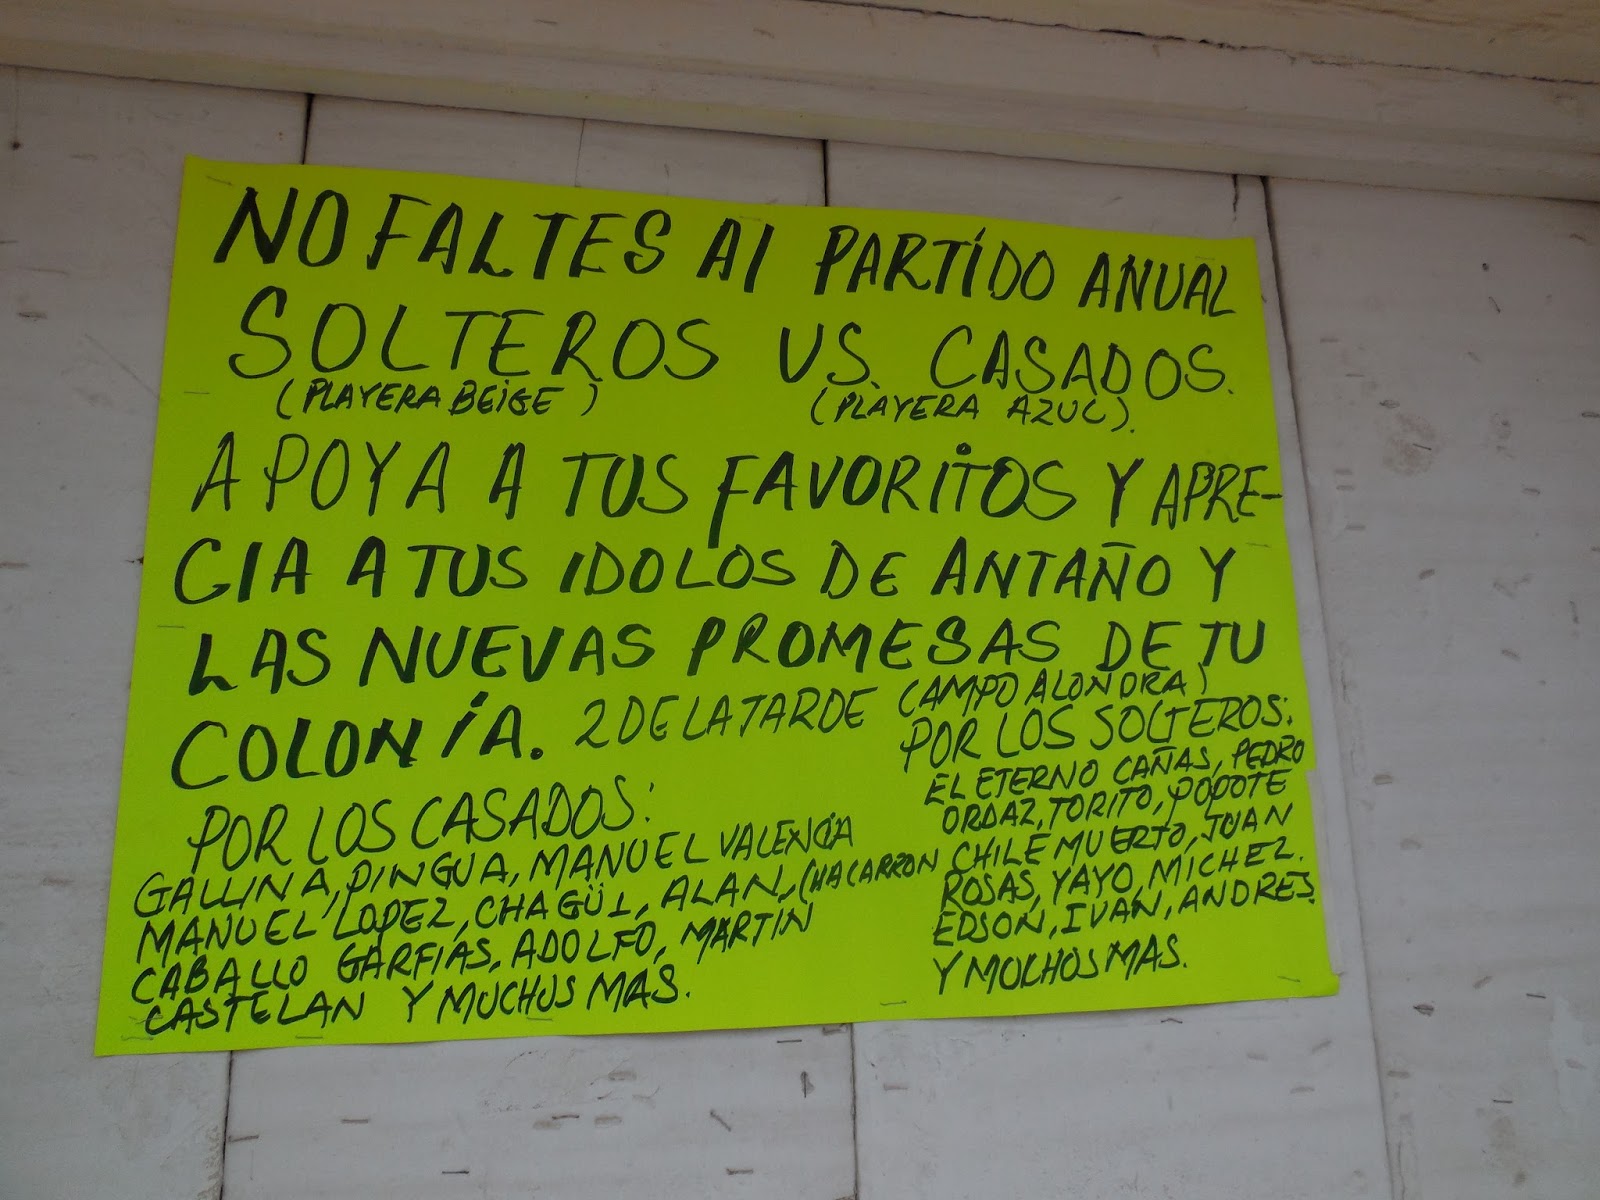 NO FALTES Al PARTIDO ANUAL
SOLTEROS VS. CASADOS.
(PLAYERA BEIGE) (PLAYERA AZUL).
APOYA A TUS FAVORITOS Y APRE-
CIA A TUS IDOLOS DE ANTAÑO Y
LAS NUEVAS PROMESAS DE TU
COLONIA. 2 DE LA TARDE (CAMPO ALONDRA)
POR LOS CASADOS:
GALLINA, PINGUA, MANUEL VALENCIA
MANUEL LOPEZ, CHAGÜI, ALAN, CHACARRON
CABALLO GARFIAS, ADOLFO, MARTIN
CASTELAN Y MUCHOS MAS.
POR LOS SOLTEROS:
EL ETERNO CAÑAS, PEDRO
ORDAZ, TORITO, POPOTE
CHILE MUERTO, JUAN
ROSAS, YAYO, MICHEL.
EDSON, IVAN, ANDRES.
Y MUCHOS MAS.